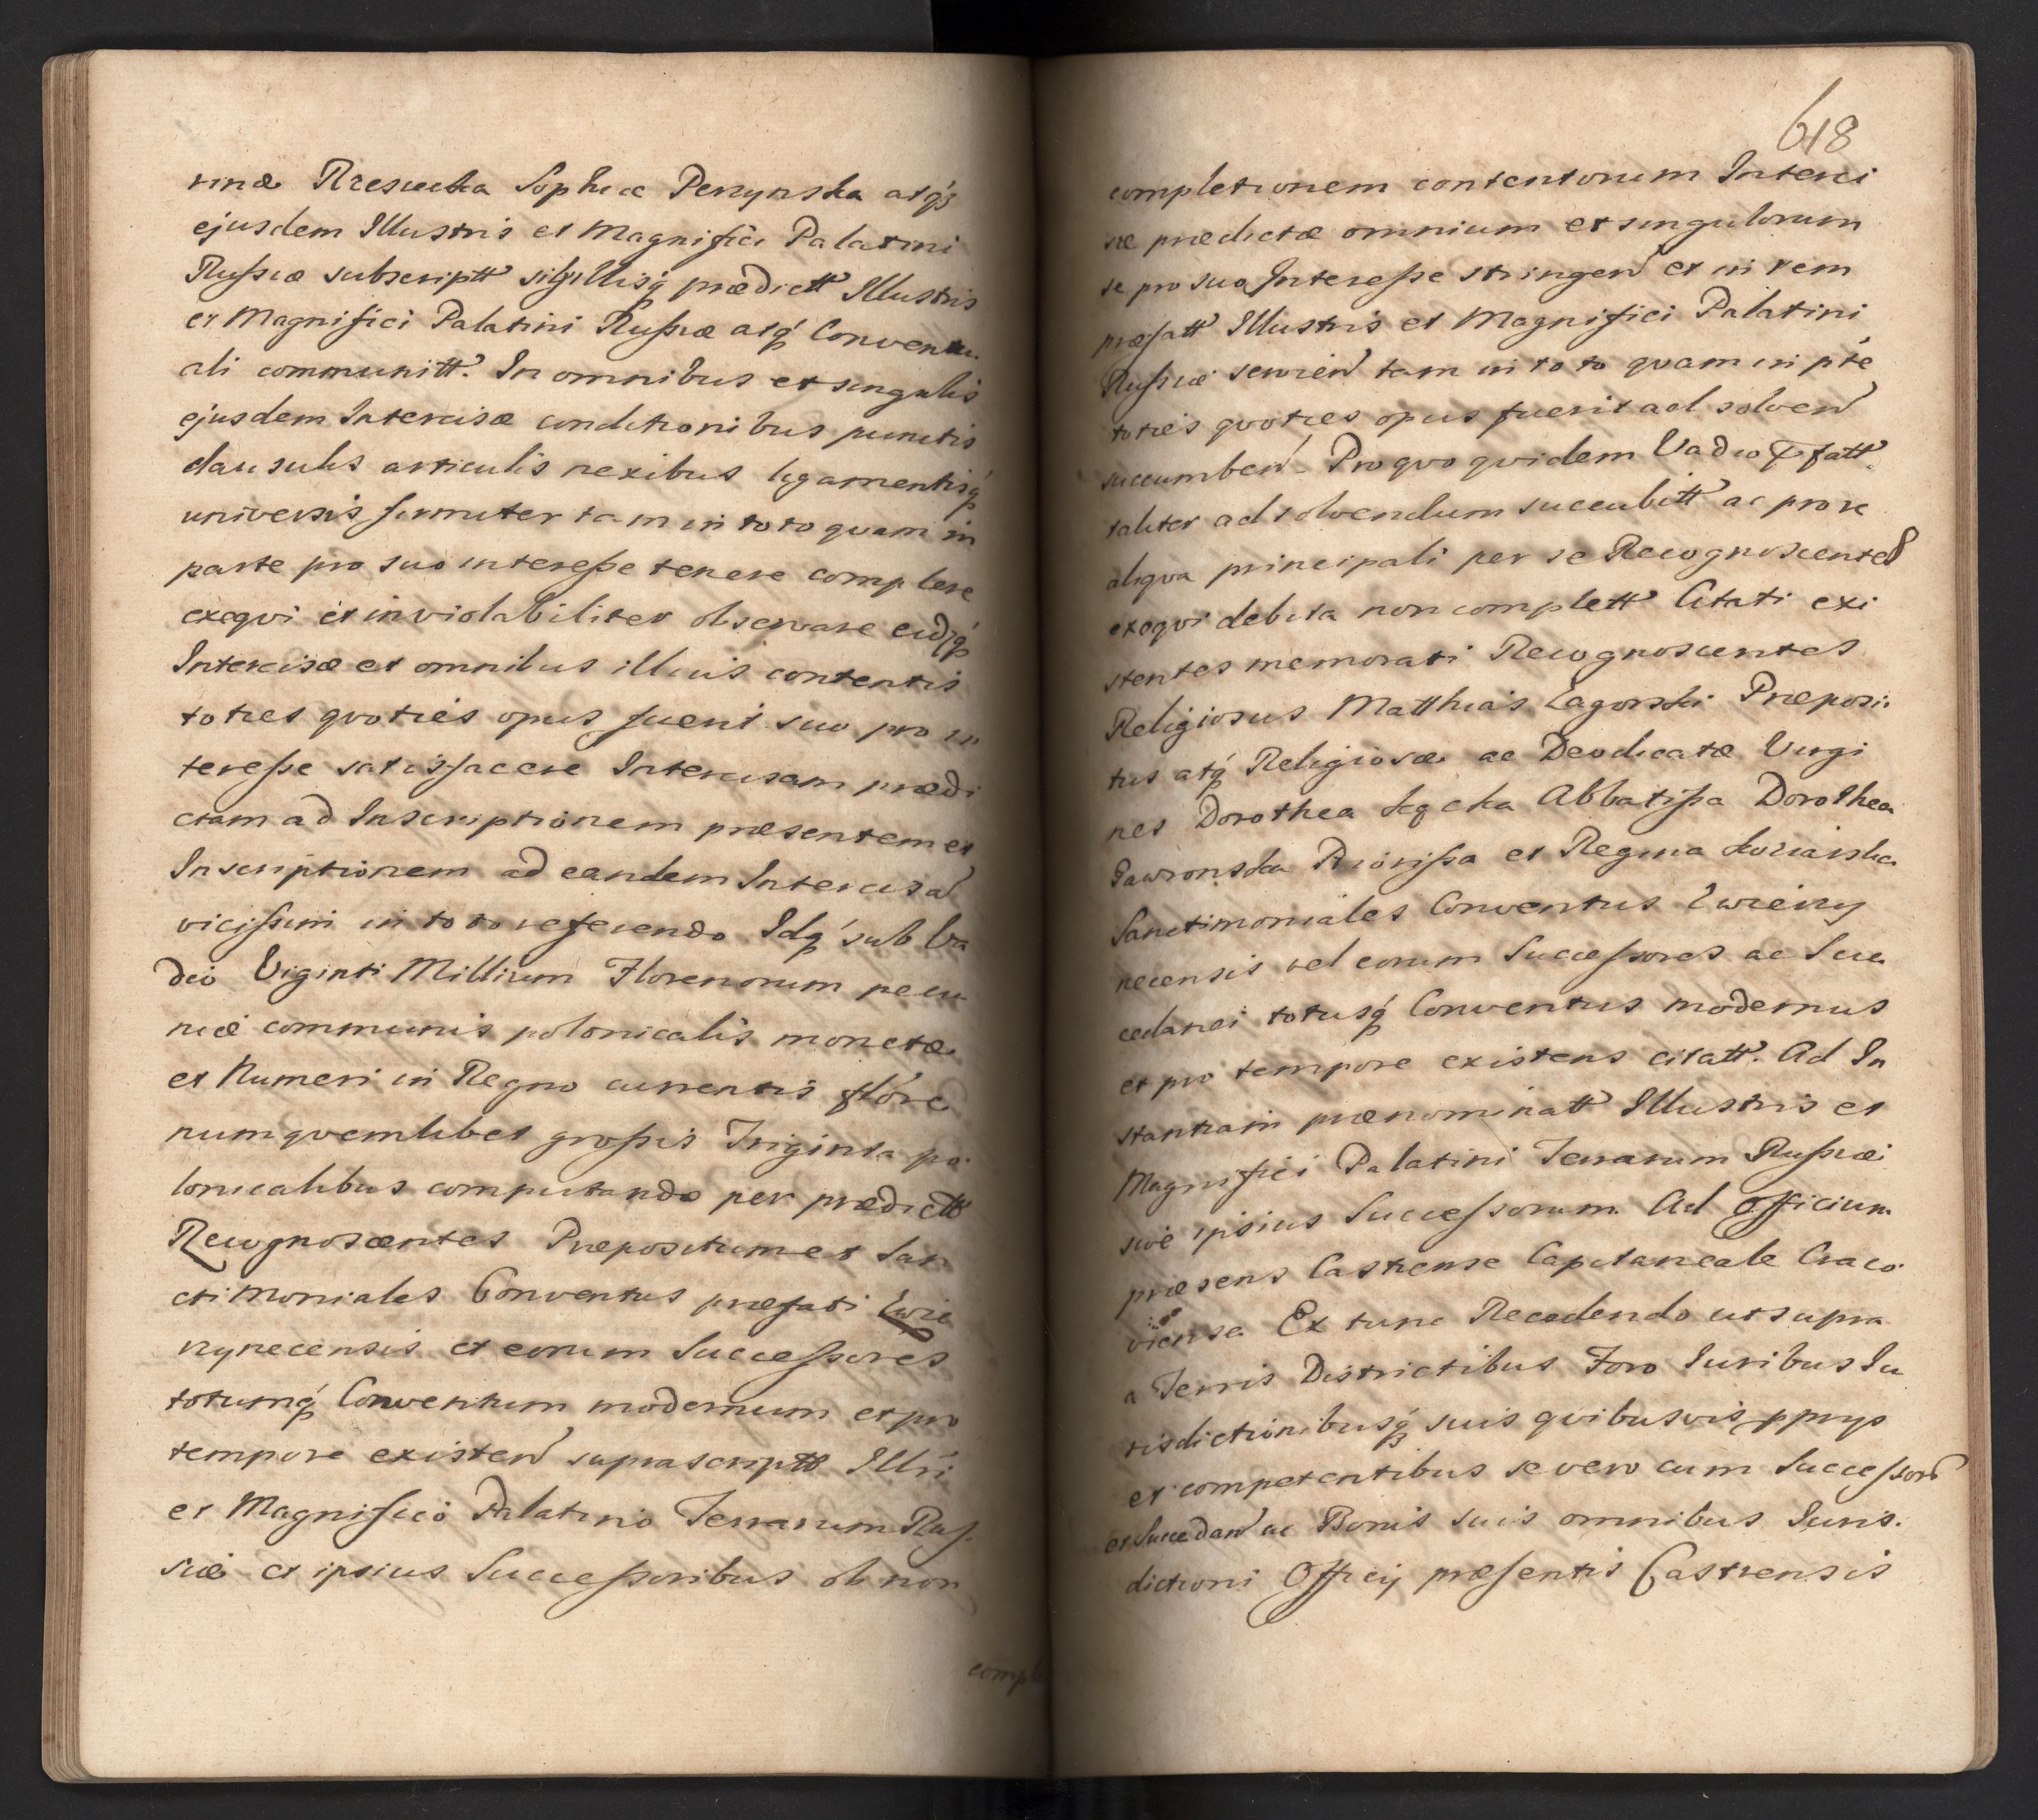 rinæ Rzesucka Sophiæ Perzynska atq́3
ejusdem Illustris et Magnifici Palatini
Rußiæ subscriptt sigillisq́ prædictt Illustris
et Magnifici Palatini Rußiæ atq́ Conventu
ali communitt. In omnibus et singulis
ejusdem Intercisæ conditionibus punctis
clausulis articulis nexibus ligamentisq́
universis firmiter tam in toto quam in
parte pro suo intereße tenere complere
exeqvi et inviolabiliter observare eidq́
Intercisæ et omnibus illius contentis
toties qvoties opus fuerit suo pro in
tereße satisfacere Intercisam prædi
ctam ad Inscriptionem præsentem et
Inscriptionem ad eandem Intercisā
vicißim in toto referendo. Idq́ sub Va
dio Viginti Millium Florenorum pecu
niæ communis polonicalis monetæ
et Numeri in Regno currentis flore
num qvemlibet großis Triginta po
lonicalibus computando per prædictt
Recognoscentes Præpositum et San
ctimoniales Conventus præfati Zwie
rzynecensis et eorum Succeßores
totumq́ Conventum modernum et pro
tempore existen supra scriptt Illri
et Magnifico Palatino Terrarum Ruß
siæ et ipsius Succeßoribus ob non
comple
618
completionem contentorum Interci
sæ prædictæ omnium et singulorum
se pro suo Intereße stringen et in rem
præfatt Illustris et Magnifici Palatini
Rußiæ servien tam in toto qvam in pte
toties qvoties opus fuerit ad solven
succumben. Pro qvo qvidem Vadio pfatt
taliter ad solvendum succubitt ac pro re
aliqva principali per se Recognoscentes
exeqvi debita non complett Citati exi
stentes memorati Recognoscentes
Religiosus Matthias Zagorski Præposi
tus atq́ Religiosæ ac Deodicatæ Virgi
nes Dorothea Kącka Abbatißa Dorothea
Gawronska Priorißa et Regina Koziarska
Sanctimoniales Conventus Zwierzy
necensis vel eorum Succeßores ac Suc
cedanei totusq́ Conventus modernus
et pro tempore existens citatt. Ad In
stantiam prænominatt Illustris et
Magnifici Palatini Terrarum Rußiæ
sive ipsius Succeßorum. Ad Officium
præsens Castrense Capitaneale Craco
viense. Ex tunc Recedendo ut supra
a Terris Districtibus Foro Iuribus Iu
risdictionibusq́ suis qvibusvis pprys
et competentibus se vero cum Succeßorib
et Succedan ac Bonis suis omnibus Iuris
dictioni Officij præsentis Castrensis